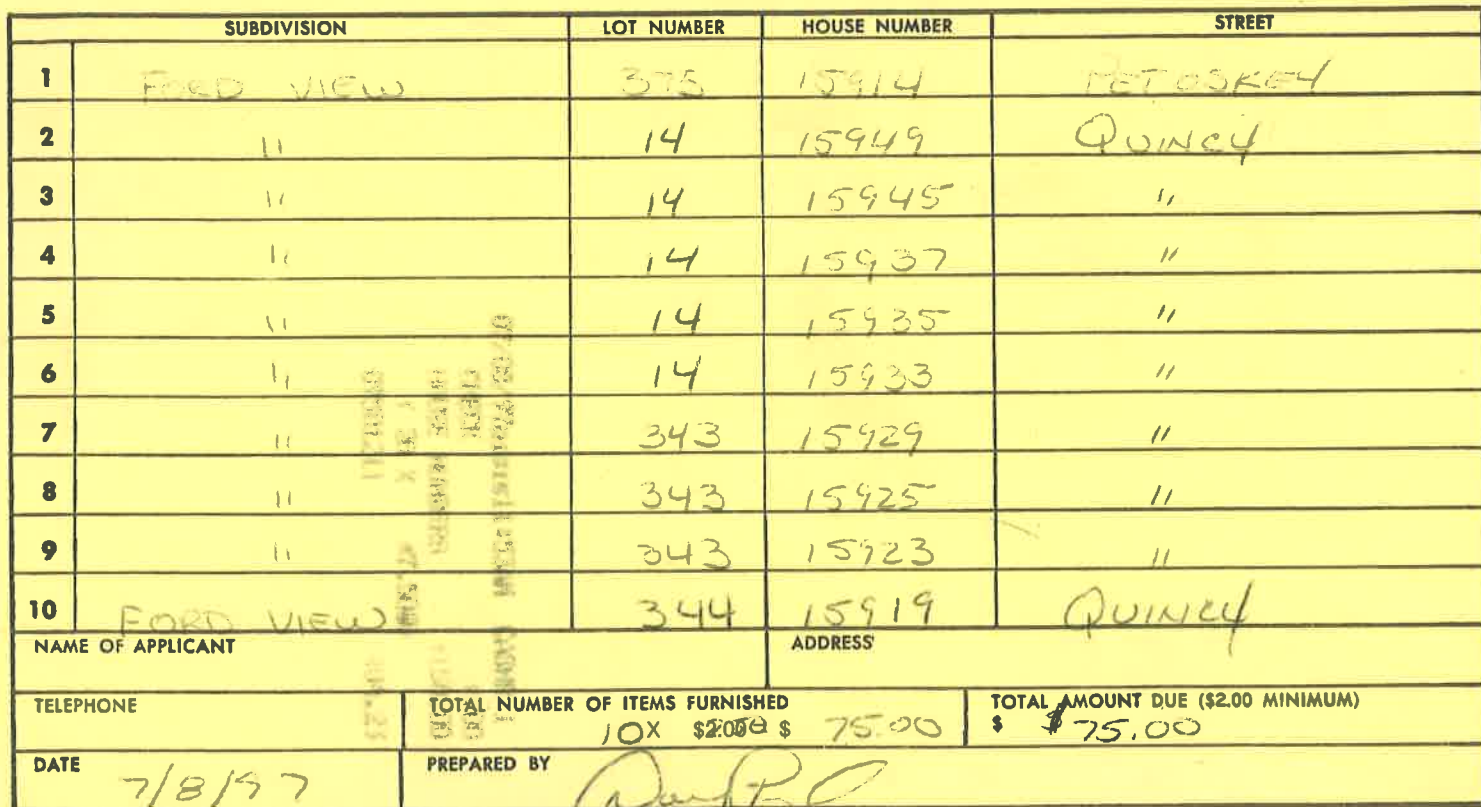 SUBDIVISION LOT NUMBER HOUSE NUMBER STREET
1 FORD VIEW 375 15914 PETOSKEY
2 " 14 15949 QUINCY
3 " 14 15945 "
4 " 14 15937 "
5 " 14 15935 "
6 " 14 15933 "
7 " 343 15929 "
8 " 343 15925 "
9 " 343 15923 "
10 FORD VIEW 344 15919 QUINCY
NAME OF APPLICANT ADDRESS
TELEPHONE TOTAL NUMBER OF ITEMS FURNISHED TOTAL AMOUNT DUE ($2.00 MINIMUM)
10X $ $ 75.00 $ $75.00
DATE PREPARED BY
7/8/97